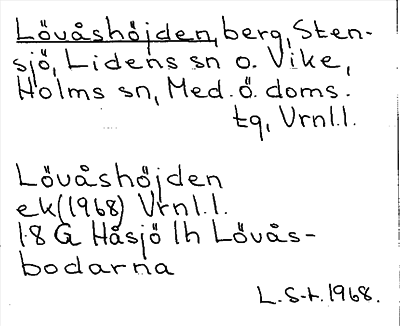 Lövåshöjden, berg, Sten-
sjö, Lidens sn o. Vike,
Holms sn, Med. ö. doms.
tq, Vrnl.l.
Lövåshöjden
ek (1968) Vrnl.l.
18 G Håsjö lh Lövås-
bodarna
L.S-t. 1968.